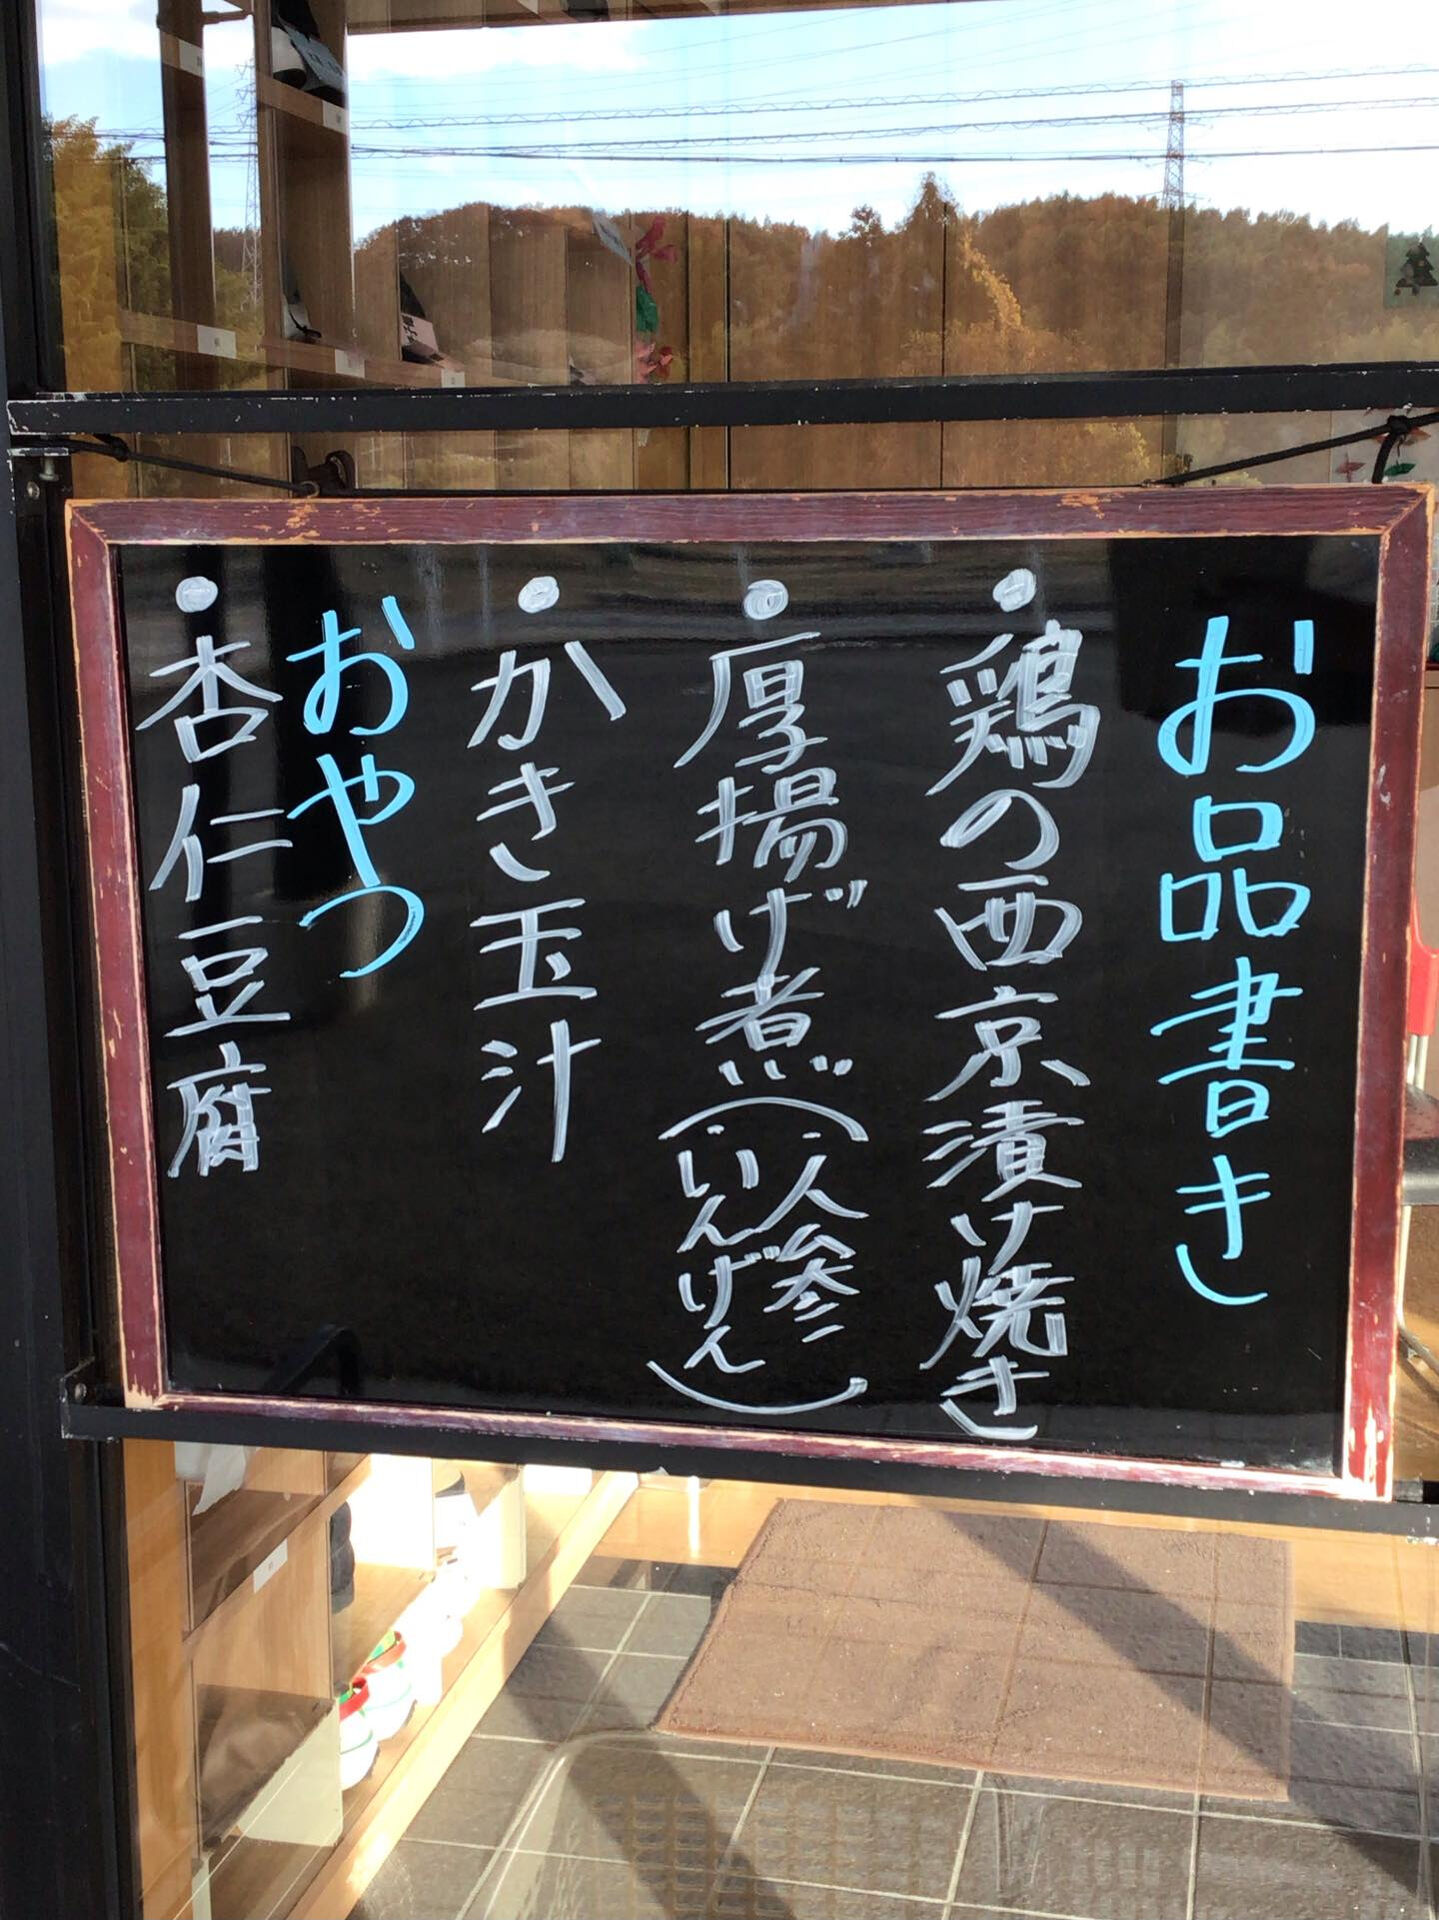 お品書き
・鶏の西京漬け焼き
・厚揚げ煮(・人参
・いんげん)
・かき玉汁
おやつ
・杏仁豆腐